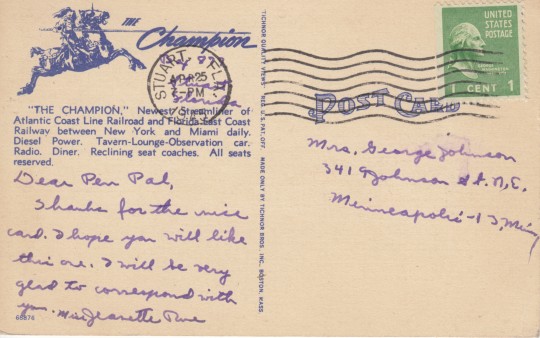 THE
Champion
"THE CHAMPION," Newest Streamliner of
Atlantic Coast Line Railroad and Florida East Coast
Railway between New York and Miami daily.
Diesel Power. Tavern-Lounge-Observation car.
Radio. Diner. Reclining seat coaches. All seats
reserved.
Dear Pen Pal,
Thanks for the nice
card. I hope you will like
this one. I will be very
glad to correspond with
you. Miss Jeanette
68874
STUART, FLA.
APR 25
7-PM
Florida
TICHNOR QUALITY VIEWS REG. U.S. PAT. OFF. MADE ONLY BY TICHNOR BROS. INC., BOSTON, MASS.
UNITED
STATES
POSTAGE
1 CENT 1
POST CARD
Mrs. George Johnson
Johnson St. N.E.
Minneapolis-13, Minn